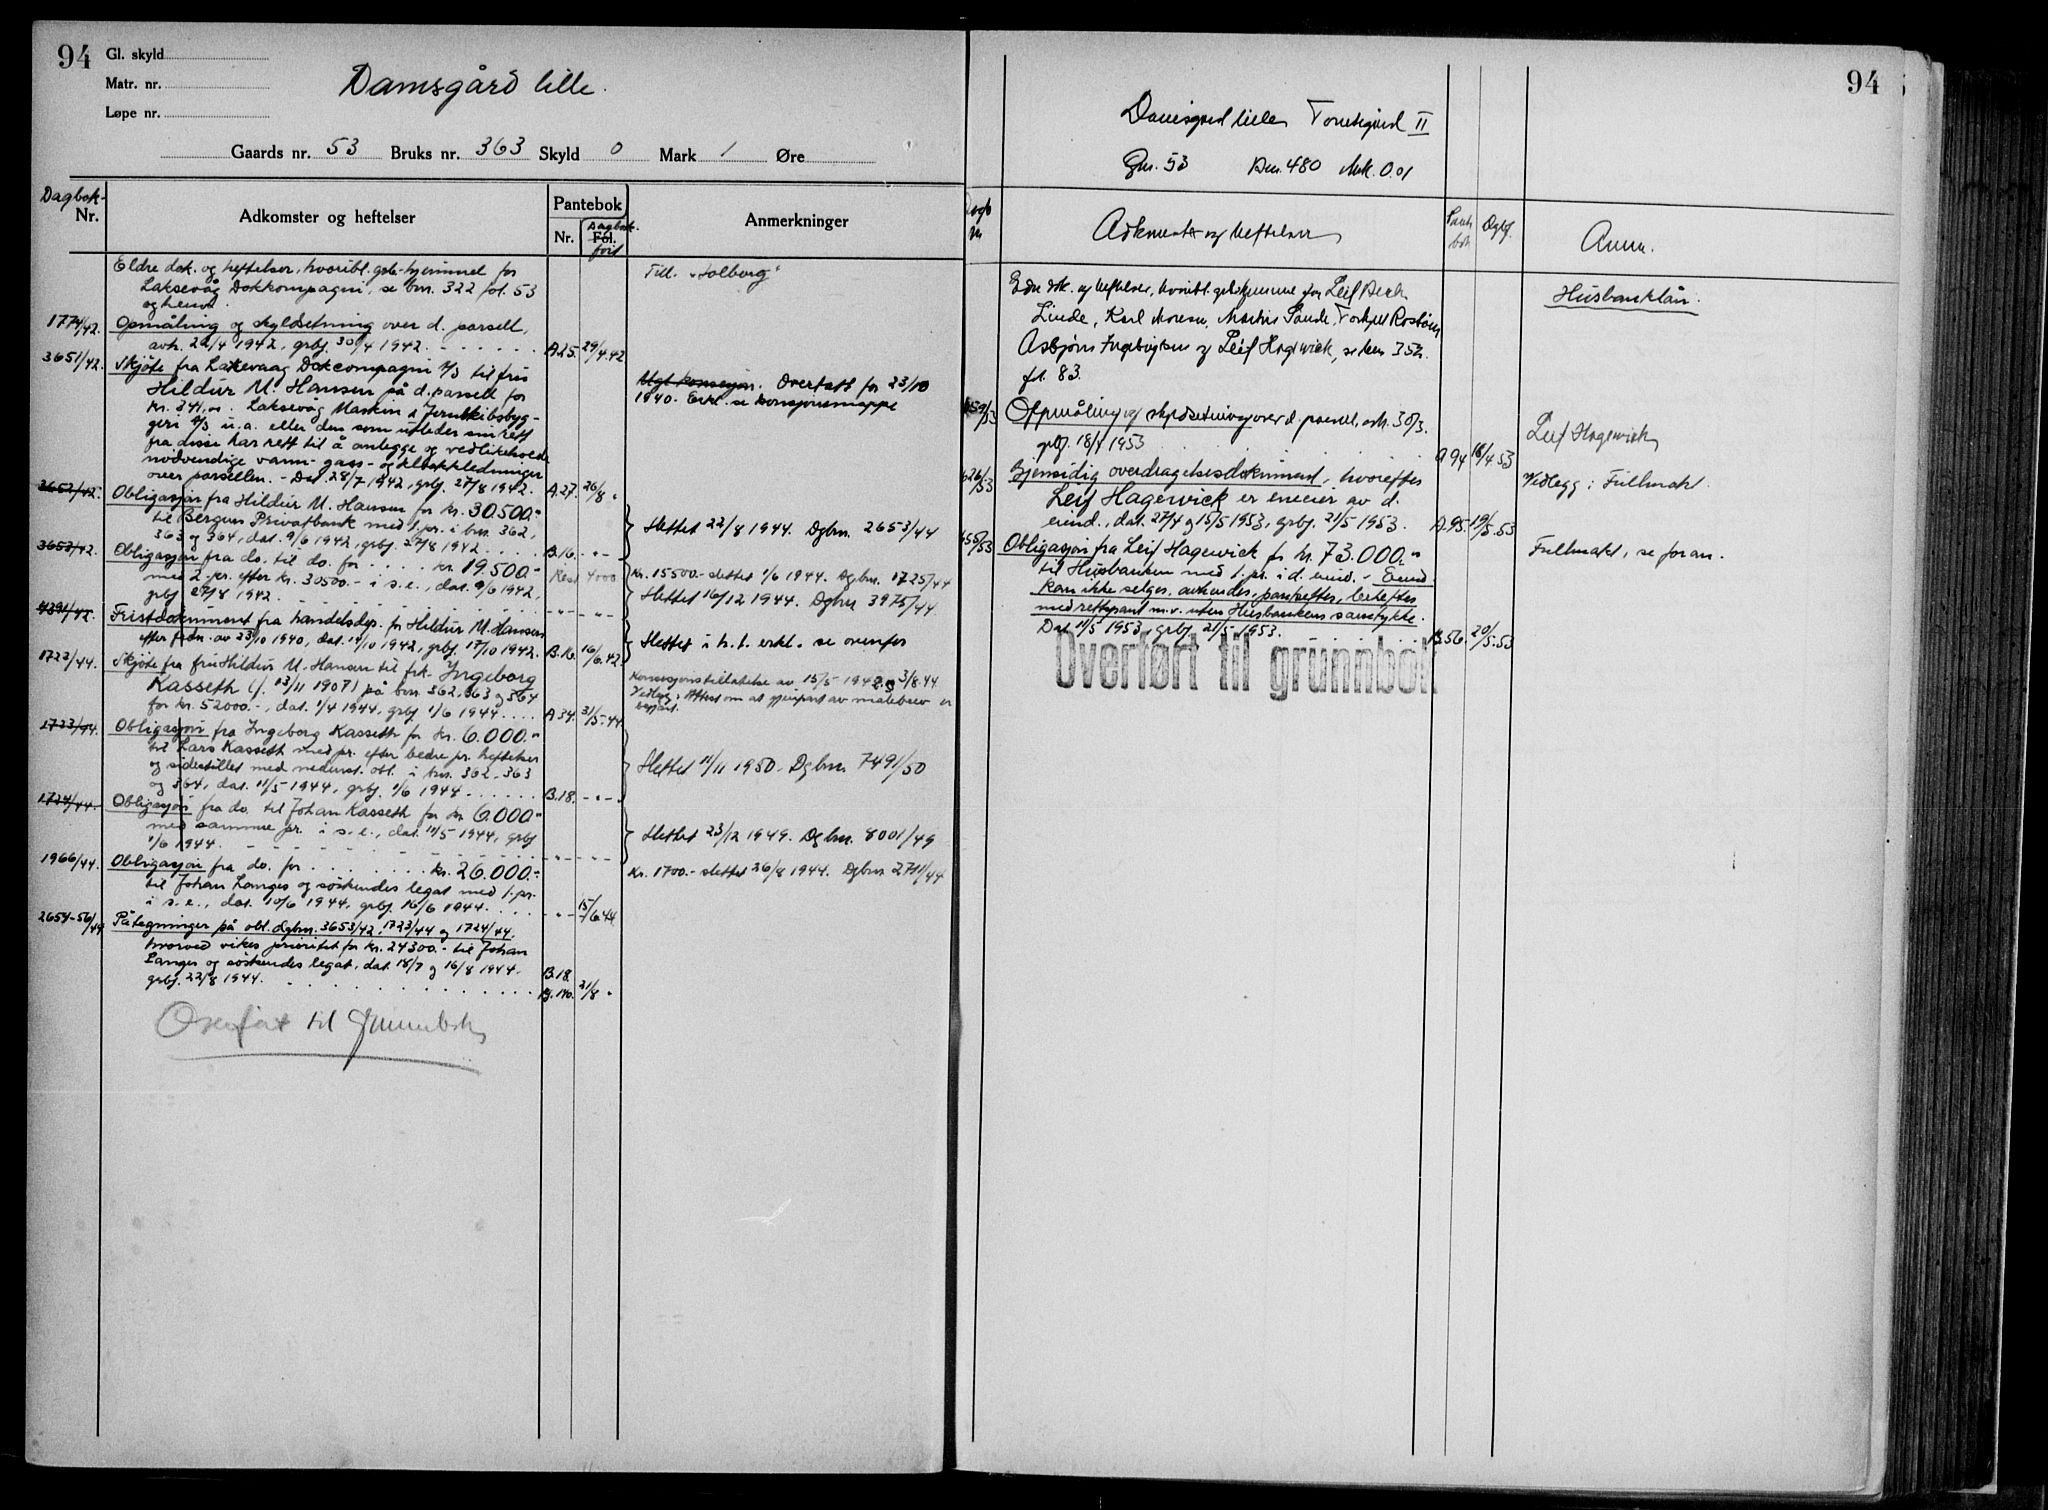 94
Gl. skyld
Matr. nr.
Løpe nr.
Damsgård lille.
Gaards nr. 53 Bruks nr. 363 Skyld 0 Mark 1 Øre
Dagbok-
Nr.
Adkomster og heftelser
Pantebok
Nr.
Fol.
Dagbok-
ført
Anmerkninger
Eldre dok. og heftelser, hvoribl. grb.hjemmel for
Laksevåg Dokkompagni, se bnr. 322 fol. 53
og henv.
Till. "Solborg"
1774/42. Opmåling og skyldsetning over d. parsell,
avh. 22/4 1942, grbj. 30/4 1942. A25. 29/4.42
3651/42. Skjøte fra Laksevaag Dokcompagni A/S til fru
Hildur M. Hansen på d. parsell for
kr. 341,00. Laksevåg Maskin & Jernskibsbyg-
geri A/S u.a. eller den som utleder sin rett
fra disse har rett til å anlegge og vedlikeholde
nødvendige vann- gass- og kloakkledninger
over parsellen. - Dat. 28/7 1942, grbj. 27/8 1942. A.27. 26/8 "
Utgt. konsesjon. Overtatt for 23/10
1940. Erkl. se konsesjonsmappe
3652/42. Obligasjon fra Hildur M. Hansen for kr. 30500.-
til Bergens Privatbank med 1. pr. i bnr. 362,
363 og 364, dat. 9/6 1942, grbj. 27/8 1942. B.16. - " -
Slettet 22/8 1944. Dgbnr. 2653/44
3653/42. Obligasjon fra do. til do. for kr. 19.500.-
med 2. pr. efter kr. 30500.- i s.e., dat. 9/6 1942,
grbj. 27/8 1942.
Rest 4000
Kr. 15500.- slettet 1/6 1944. Dgbnr. 1725/44
Slettet 16/12 1944. Dgbnr 3975/44
4391/42. Fristdokument fra handelsdep. for Hildur M. Hansen
efter frdn. av 23/10 1940, dat. 14/10 1942, grbj. 17/10 1942. B.16. 16/6.42
Slettet i h. t. erkl. se ovenfor
1722/44. Skjøte fra fru Hildur M. Hansen til frk. Ingeborg
Kasseth (f. 13/11 1907) på bnr. 362, 363 og 364
for kr. 52000.-, dat. 1/4 1944, grbj. 1/6 1944. A 34. 31/5.44.
Konsesjonstillatelse av 15/5 1942 og 3/8.44
Vedlegg: Attest om at gjenpart av målebrev er
begjært.
1723/44. Obligasjon fra Ingeborg Kasseth for kr. 6.000.-
til Lars Kasseth med pr. efter bedre pr. heftelser
og sidestillet med nedenst. obl. i bnr. 362, 363
og 364, dat. 11/5 1944, grbj. 1/6 1944. B.18. - " -
Slettet 11/11 1950. Dgbnr. 7491/50
1724/44. Obligasjon fra do. til Johan Kasseth for kr 6.000.-
med samme pr. i s.e., dat. 11/5 1944, grbj.
1/6 1944.
Slettet 23/12 1949. Dgbnr. 8001/49
1966/44. Obligasjon fra do. for kr. 26.000.-
til Johan Langes og søskendes legat med 1. pr.
i s.e., dat. 10/6 1944, grbj. 16/6 1944. - " - 15/6.44.
Kr. 1700.- slettet 26/8 1944. Dgbnr 2711/44
2654-56/44 Påtegninger på obl. dgbnr. 3653/42, 1723/44 og 1724/44,
hvorved vikes prioritet for kr. 24300.- til Johan
Langes og søskendes legat, dat. 18/7 og 16/8 1944,
grbj. 22/8 1944. B.18. 21/8 "
Overført til grunnbok
94
Damsgård lille Tomtegård II
Gnr. 53 Bnr. 480 Mrk. 0.01
Dagb
nr
Adkomster og heftelser
Pante
bok
Dgbf.
Anm.
Eldre dok. og heftelser, hvoribl. grb.hjemme for Leif Berh
Linde, Karl Moresen, Martin Sande, Torkjell Rostøen
Asbjørn Ingebrigtsen og Leif Hagewick, se bnr 352.
fol. 83.
Husbanklån.
Oppmåling og skyldsetning over d. parsell, avh. 30/3.
grbj. 18/4 1953 A 94 16/4 53
Leif Hagewick
626/53 Gjensidig overdragelsesdokument, hvorefter
Leif Hagewick er eneeier av d.
eiend., dat. 27/4 og 15/5 1953, grbj. 21/5 1953. A.95. 19/5.53
Vedlegg: Fullmakt.
655/53 Obligasjon fra Leif Hagewick for kr. 73.000.-
til Husbanken med 1. pr. i d. eiend. - Eiend.
kan ikke selges, avhendes, pantsettes, beheftes
med rettspant m.v. uten Husbankens samtykke.
Dat. 11/5 1953, grbj. 21/5 1953. B.56. 20/5.53
Fullmakt, se foran.
Overført til grunnbok